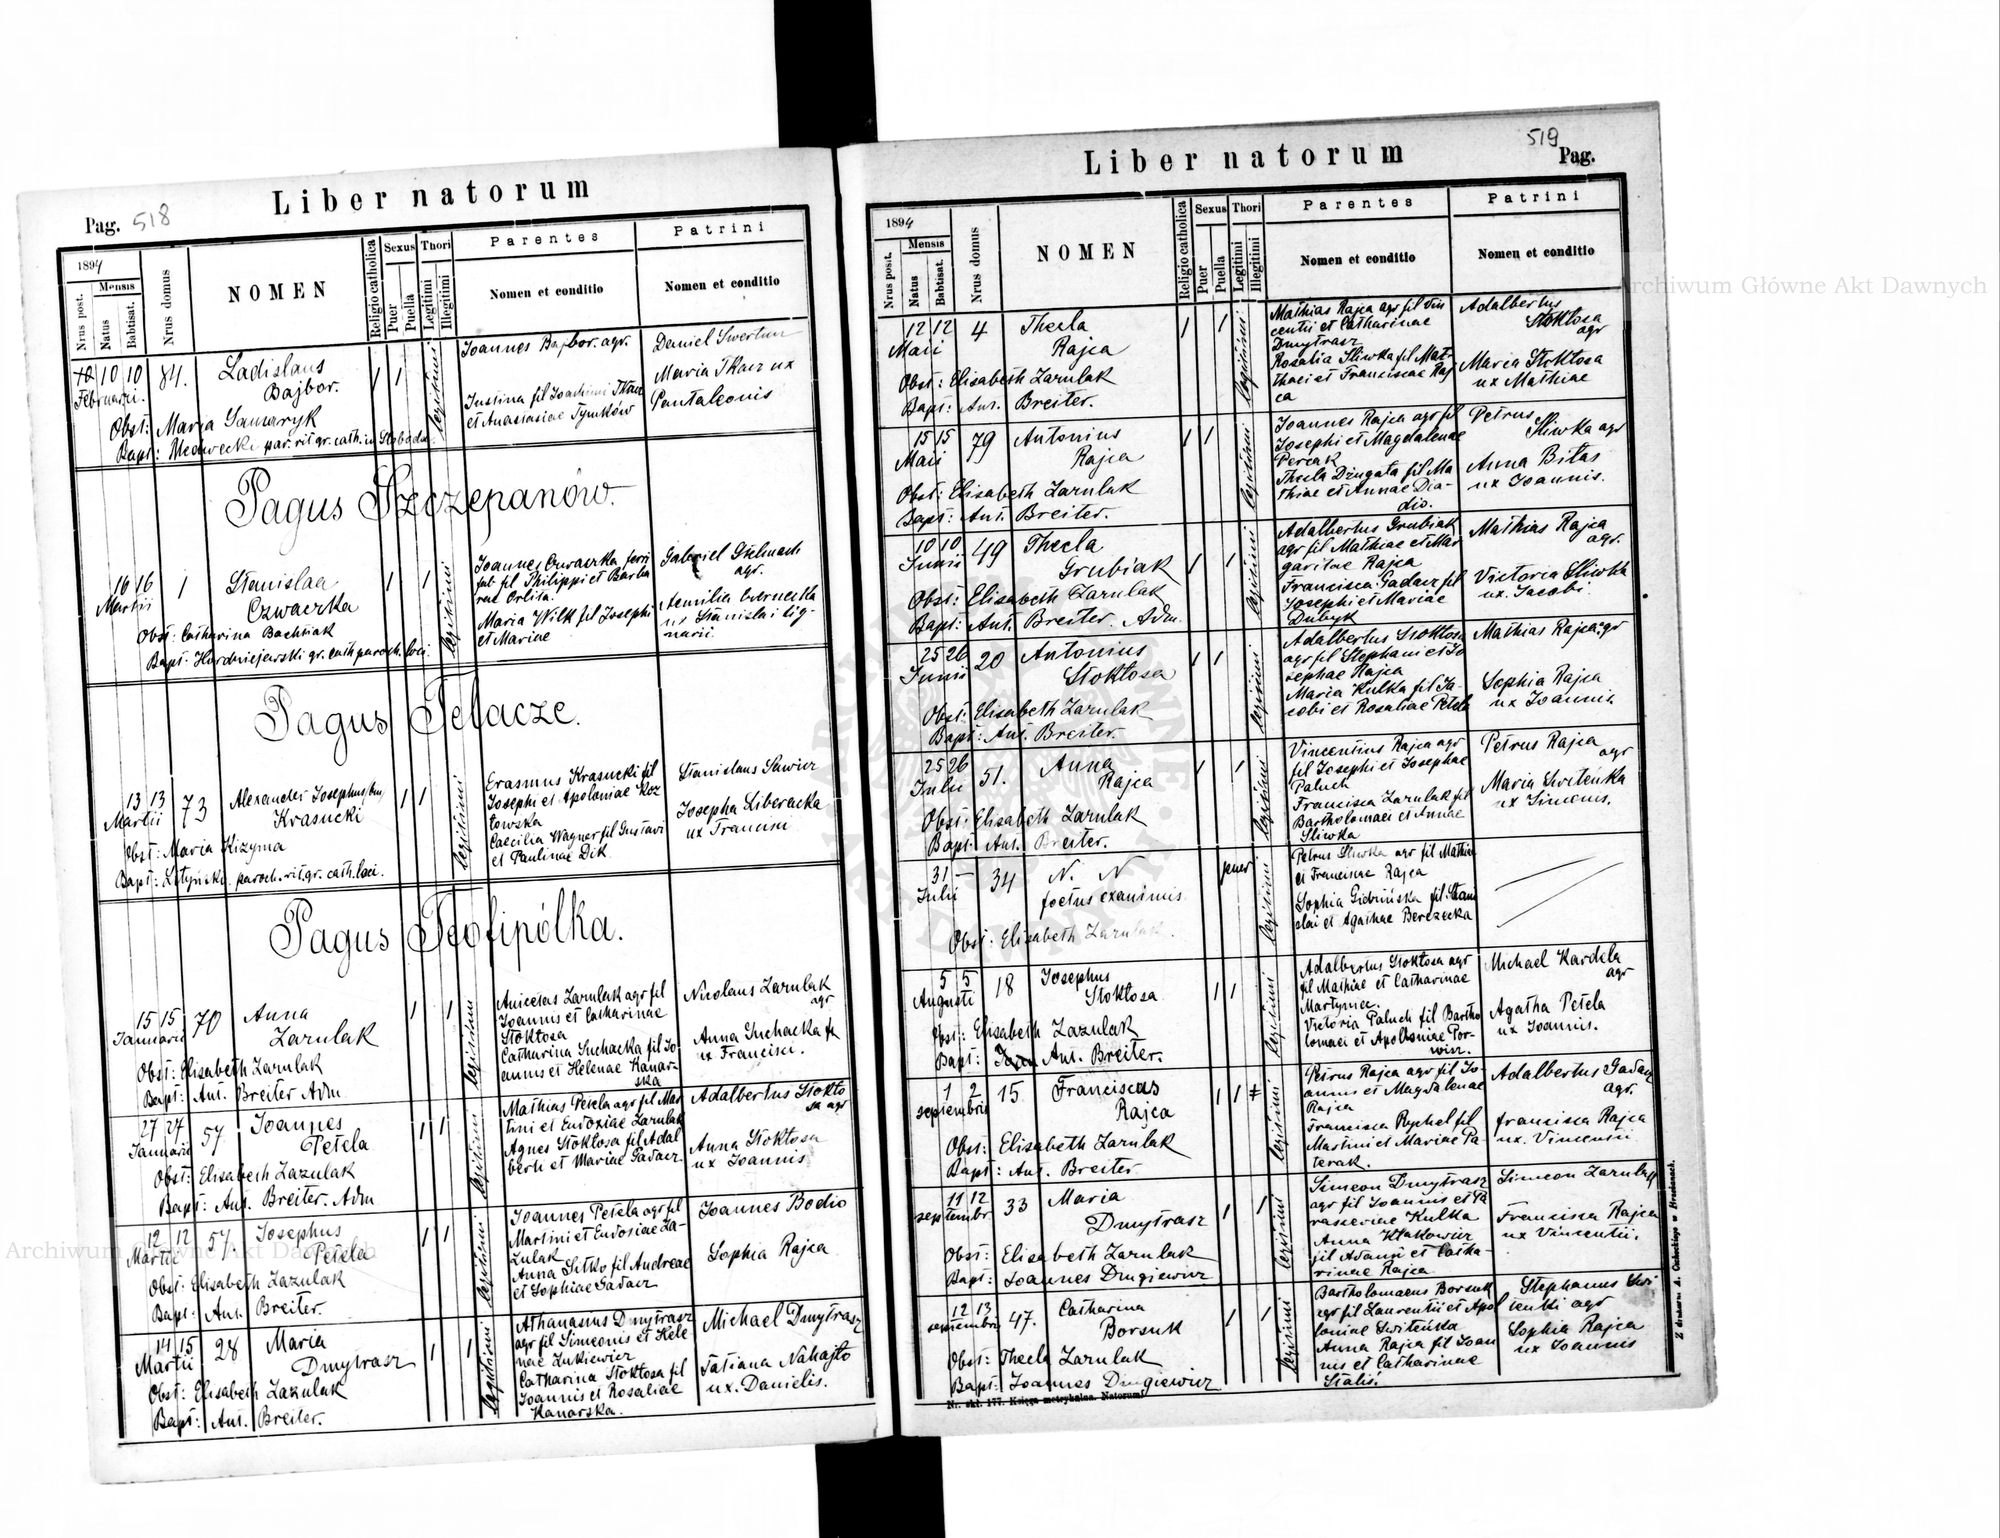 Pag. 518
Liber natorum
1894
Nrus post.
Mensis
Natus
Babtisat.
Nrus domus
NOMEN
Religio catholica
Sexus
Puer
Puella
Thori
Legitimi
Illegitimi
Parentes
Nomen et conditio
Patrini
Nomen et conditio
10 10 84. Ladislaus
Februarii. Bajbor.
1 1
Joannes Bajbor. agr.
Justina fil Joachimi Tkacz
et Anastasiae Tymków
Maria Tkacz ux
Pantaleonis
Obst: Maria
Bapt: par. rit gr. cath. in
Pagus Szczepanów.
16 16 1 Stanislaa
Martii Czwaczka
1 1
legitimi
Joannes Czwaczka
fil Philippi et Barba
rae Orlita.
Maria Wilk fil Josephi
et Mariae
Gabriel
agr.
ux Stanislai lig-
narii.
Obst: Catharina Bachniak
Bapt: Hordniejewski gr. cath paroch. loci
Pagus Telacze.
13 13 73 Alexander Josephus
Martii Krasucki
1 1
legitimi
Erasmus Krasucki fil
Josephi et Apoloniae Koz
lowska
Caecilia Wagner fil Gustavi
et Paulinae Dik
Stanislaus Sawicz
Josepha Liberacka
ux Francisci
Obst: Maria Kizyma
Bapt: paroch. rit. gr. cath. loci.
Pagus Teofipólka.
15 15 70 Anna
Januarii Zarulak
1 1
legitimi
Zarulak agr fil
Joannis et Catharinae
Stoktosa
Catharina Suchacka fil Jo-
annis et Helenae Kanar-
ska
Nicolaus Zarulak
agr
Anna Suchacka
ux. Francisci.
Obst: Elisabeth Zarulak
Bapt: Ant. Breiter Adm.
27 27 57 Joannes
Januarii Petela
1 1
legitimi
Mathias Petela agr fil Mar
tini et Eudoxiae Zarulak
Agnes Stoktosa fil Adal
berti et Mariae Gadacz.
Adalbertus Stokto
sa agr
Anna Stoktosa
ux Joannis
Obst: Elisabeth Zazulak
Bapt: Ant. Breiter. Adm
12 12 57 Josephus
Martii Petela
1 1
legitimi
Joannes Petela agr fil
Martini et Eudosiae Za-
zulak
Anna Sitko fil Andreae
et Sophiae Gadacz
Joannes Bodio
Sophia Rajca
Obst: Elisabeth Zazulak
Bapt: Ant. Breiter.
14 15 28 Maria
Martii Dmytrasz
1 1
legitimi
Athanasius Dmytrasz
agr fil Simeonis et Hele
nae Lukiewicz
Catharina Stoktosa fil
Joannis et Rosaliae
Kanarska.
Michael Dmytrasz
Tatiana Nahajto
ux. Danielis.
Obst: Elisabeth Zazulak
Bapt: Ant. Breiter.
519
Liber natorum
Pag.
1894
Nrus posit.
Mensis
Natus
Babtisat.
Nrus domus
NOMEN
Religio catholica
Sexus
Puer
Puella
Thori
Legitimi
Illegitimi
Parentes
Nomen et conditio
Patrini
Nomen et conditio
12 12 4 Thecla
Maii Rajca
1 1
legitimi
Mathias Rajca agr fil Vin
centii et Catharinae
Dmytrasz
Rosalia Sliwka fil Mat-
thaei et Franciscae Raj
ca
Adalbertus
Stoktosa
agr
Maria Stoktosa
ux Mathiae
Obst: Elisabeth Zarulak
Bapt: Ant. Breiter.
15 15 79 Antonius
Maii Rajca
1 1
legitimi
Joannes Rajca agr fil
Josephi et Magdalenae
Perczak
Thecla Dzugata fil Ma
thiae et Annae Dia-
dio.
Petrus
Sliwka agr
Anna Bitas
ux Joannis.
Obst: Elisabeth Zarulak
Bapt: Ant. Breiter.
10 10 49 Thecla
Junii Grubiak
1 1
legitimi
Adalbertus Grubiak
agr fil Mathiae et Mar
garitae Rajca
Francisca Gadacz fil
Josephi et Mariae
Dubyk
Mathias Rajca
agr.
Victoria Sliwka
ux. Jacobi.
Obst: Elisabeth Zarulak
Bapt: Ant. Breiter. Adm.
25 26 20 Antonius
Junii Stoktosa
1 1
legitimi
Adalbertus Stoktosa
agr fil Stephani et Jo
sephae Rajca
Maria Kulka fil Ja-
cobi et Rosaliae Petela
Mathias Rajca agr
Sophia Rajca
ux Joannis.
Obst: Elisabeth Zarulak
Bapt: Ant. Breiter.
25 26 51. Anna
Julii Rajca
1 1
legitimi
Vincentius Rajca agr
fil Josephi et Josephae
Paluch
Francisca Zarulak fil
Bartholomaei et Annae
Sliwka
Petrus Rajca
agr
Maria Switenka
ux Simonis.
Obst: Elisabeth Zarulak
Bapt: Ant. Breiter.
31 — 34 N. N
Julii foetus exanimis
puer
legitimi
Petrus Sliwka agr fil Mathiae
et Franciscae Rajca
Sophia Gidzińska fil. Stani
slai et Agathae Berezecka
Obst: Elisabeth Zarulak.
5 5 18 Josephus
Augusti Stoktosa
1 1
legitimi
Adalbertus Stoktosa agr
fil Mathiae et Catharinae
Martynia.
Victoria Paluch fil Bartho
lomaei et Apoloniae Por-
wisz.
Michael Kardela
agr
Agatha Petela
ux Joannis.
Obst: Elisabeth Zazulak
Bapt: Ant. Breiter.
1 2 15 Franciscus
septembris Rajca
1 1
legitimi
Petrus Rajca agr fil Jo-
annis et Magdalenae
Rajca
Francisca Pyphel fil
Martini et Mariae Pa-
terak.
Adalbertus Gadacz
agr.
Francisca Rajca
ux. Vincentii
Obst: Elisabeth Zarulak
Bapt: Ant. Breiter.
11 12 33 Maria
septembr Dmytrasz
1 1
legitimi
Simeon Dmytrasz
agr fil Joannis et Pa
rasceviae Kulka
Anna Klakowicz
fil Adami et Catha-
rinae Rajca
Simeon Zarulak
Francisca Rajca
ux Vincentii.
Obst: Elisabeth Zarulak
Bapt: Joannes Drugiewicz
12 13 47. Catharina
septembris Borsuk
1 1
legitimi
Bartholomaeus Borsuk
agr fil Laurentii et Apol
loniae Switenka
Anna Rajca fil Joan
nis et Catharinae
Stalis.
Stephanus Swi
tenki agr
Sophia Rajca
ux Joannis
Obst: Thecla Zarulak
Bapt: Joannes Drugiewicz
Nr. skl. 177. Księga metrykalna. Natorum.
Archiwum Główne Akt Dawnych
Archiwum Główne Akt Dawnych